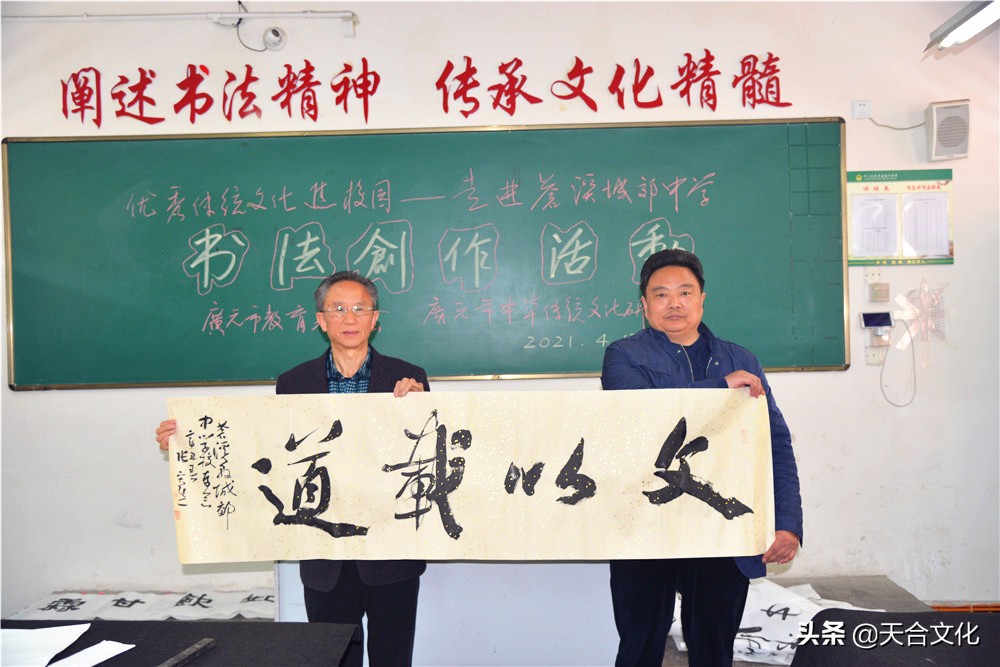 阐述书法精神 传承文化精髓
优秀传统文化进校园——走进苍溪城郊中学
书法創作活動
廣元市教育 廣元市中华传统文化研
2021.4
文以載道
苍溪县城郊
中学校存念
辛丑春
头条 @天合文化